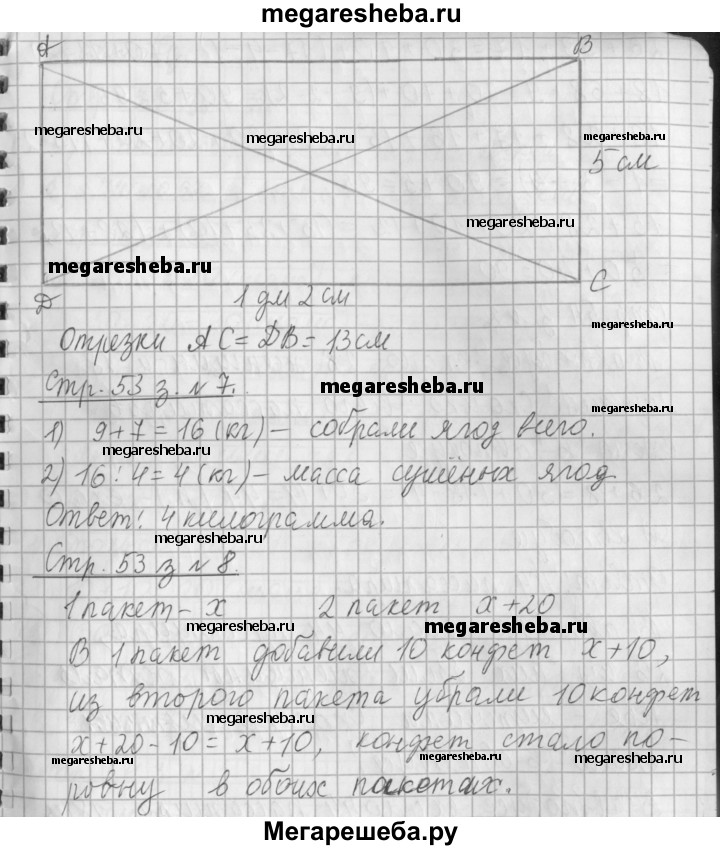 megaresheba.ru
A B
megaresheba.ru
megaresheba.ru
megaresheba.ru
5 см
megaresheba.ru
megaresheba.ru
D C
1 дм 2 см
megaresheba.ru
Отрезки АС = DB = 13 см
Стр. 53 з. № 7.
megaresheba.ru
megaresheba.ru
1) 9+7=16 (кг) – собрали ягод всего.
megaresheba.ru
2) 16:4=4 (кг) – масса сушёных ягод
Ответ: 4 килограмма.
megaresheba.ru
Стр. 53 з № 8.
megaresheba.ru
1 пакет – х 2 пакет х+20
megaresheba.ru
megaresheba.ru
В 1 пакет добавили 10 конфет х+10,
из второго пакета убрали 10 конфет
megaresheba.ru
х+20-10=х+10, конфет стало по-
megaresheba.ru
megaresheba.ru
ровну в обоих пакетах.
Мегарешеба.ру